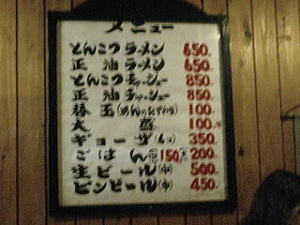 メニュー
とんこつラーメン 650
正油ラーメン 650
とんこつチャーシュー 850
正油チャーシュー 850
替玉(めんのおかわり) 100
大盛 100
ギョーザ 350
ごはん 150 200
生ビール(中) 500
ビンビール(中) 450